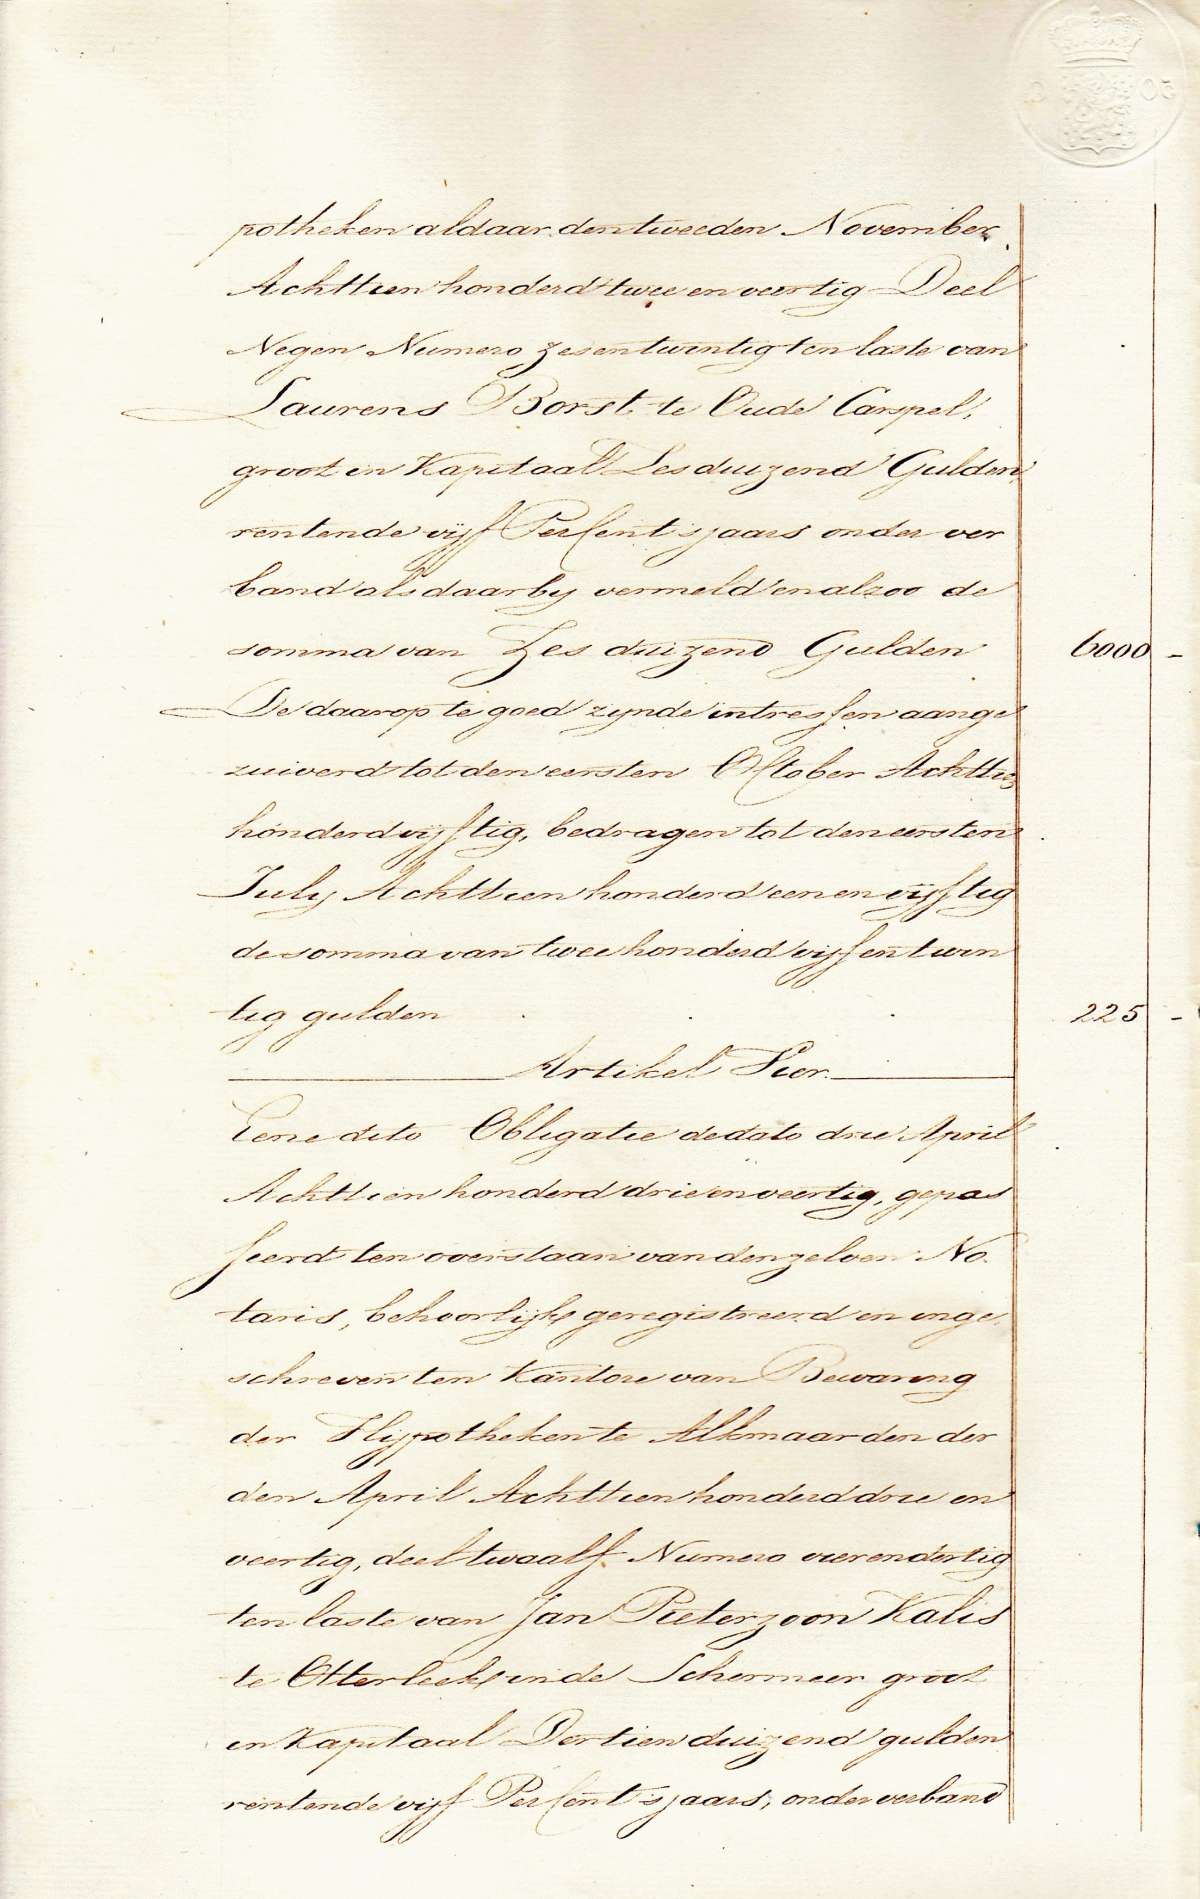 potheken aldaar den tweeden November
Achttien honderd twee en veertig Deel
Negen Numero zesentwintig ten laste van
Laurens Borst te Oude Carspel,
groot in Kapitaal Zesduizend Gulden,
rentende vijf PerCent 'sjaars onder ver
band als daarby vermeld en alzoo de
somma van Zes duizend Gulden 6000 -
De daarop te goed zynde intressen aange
zuiverd tot den eersten October Achttien
honderd vijftig, bedragen tot den eersten
July Achttien honderd een en vijftig
de somma van twee honderd vijf en twin
tig gulden 225 -
Artikel Vier.
Eene dito Obligatie de dato drie April
Achttien honderd drie en veertig, gepas
seerd ten overstaan van denzelven No.
taris, behoorlijk geregistreerd en inge.
schreven ten Kantore van Bewaring
der Hypotheken te Alkmaar den der
den April Achttien honderd drie en
veertig, deel twaalf Numero vierendertig
ten laste van Jan Pieterzoon Kalis
te Otterleek in de Schermeer groot
in Kapitaal Dertien duizend gulden
rentende vijf PerCent 'sjaars, onder verband